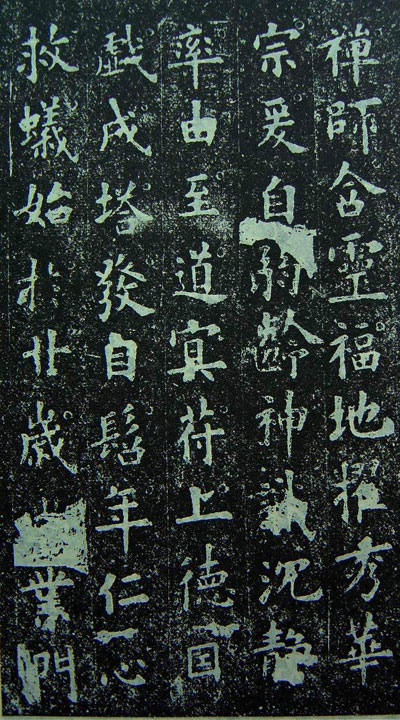 禪師含靈福地擢秀華
宗爰自弱齡神識沉静
率由至道冥苻上德因
戲成塔發自髫年仁心
救蟻始於廿歲業門